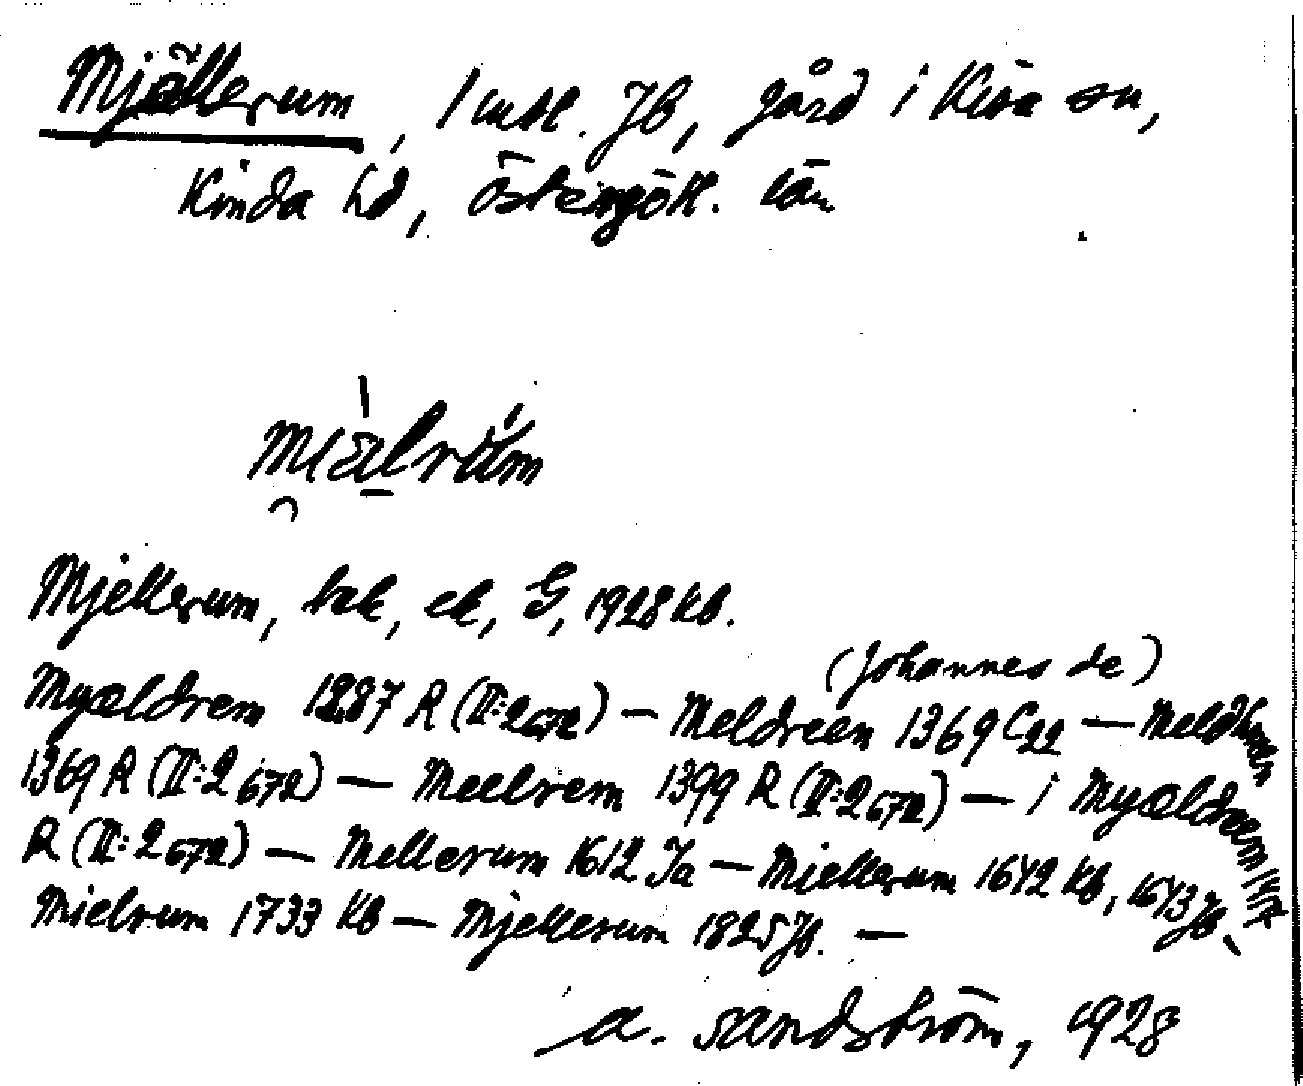 Mjällerum, 1 mtl. Jb, gård i Kisa sn,
Kinda hd, Östergötl. län
miälrúm
Mjellerum, bek, ek, G, 1928 Kb.
(Johannes de)
Myældrem 1287 R (II:2 672) — Meldreen 1369 C22 — Meldhren
1369 R (II:2 672) — Meelrem 1399 R (II:2 672) — i Myældrem 1417
R (II:2 672) — Mellerum 1612 Ja — Miellerum 1642 Kb, 1643 Jb —
Mielrum 1733 Kb — Mjellerum 1825 Jb. —
A. Sandström, 1928